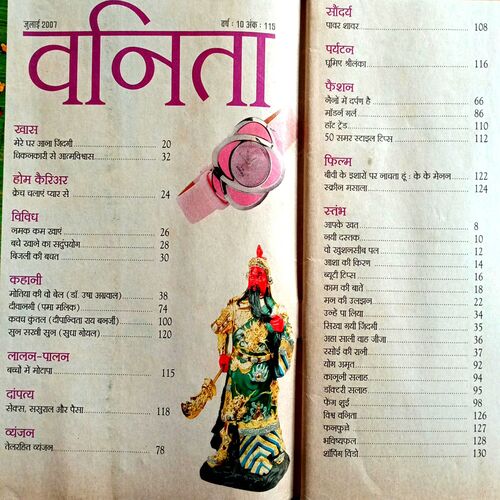 जुलाई 2007
वर्ष : 10 अंक : 115
वनिता
खास
मेरे घर आना जिंदगी 20
चिकनकारी से आत्मविश्वास 32
होम कैरिअर
क्रेच चलाएं प्यार से 24
विविध
नमक कम खाएं 26
बचे खाने का सदुपयोग 28
बिजली की बचत 30
कहानी
मोतिया की वो बेल (डॉ. उषा अग्रवाल) 38
दीवानगी (पमा मलिक) 74
कवच कुंतल (दीपान्विता राय बनर्जी) 100
सुन सखी सुन (सुधा गोयल) 120
लालन-पालन
बच्चों में मोटापा 115
दांपत्य
सेक्स, ससुराल और पैसा 118
व्यंजन
तेलरहित व्यंजन 78
सौंदर्य
पावर शावर 108
पर्यटन
घूमिए श्रीलंका 116
फैशन
नैनों में दर्पण है 66
मॉडर्न गर्ल 86
हॉट ट्रेंड 110
50 समर स्टाइल टिप्स 112
फिल्म
बीवी के इशारों पर नाचता हूं : के के मेनन 122
स्क्रीन मसाला 124
स्तंभ
आपके खत 8
नयी दस्तक 10
वो खुशनसीब पल 12
आशा की किरण 14
ब्यूटी टिप्स 16
काम की बातें 18
मन की उलझन 22
उन्हें पा लिया 34
सिखा गयी जिंदगी 35
अहा साली वाह जीजा 36
रसोई की रानी 37
योग अमृत 92
कानूनी सलाह 94
डॉक्टरी सलाह 95
फेंग शुई 98
विश्व वनिता 126
फनफुल्ले 127
भविष्यफल 128
शॉपिंग विंडो 130